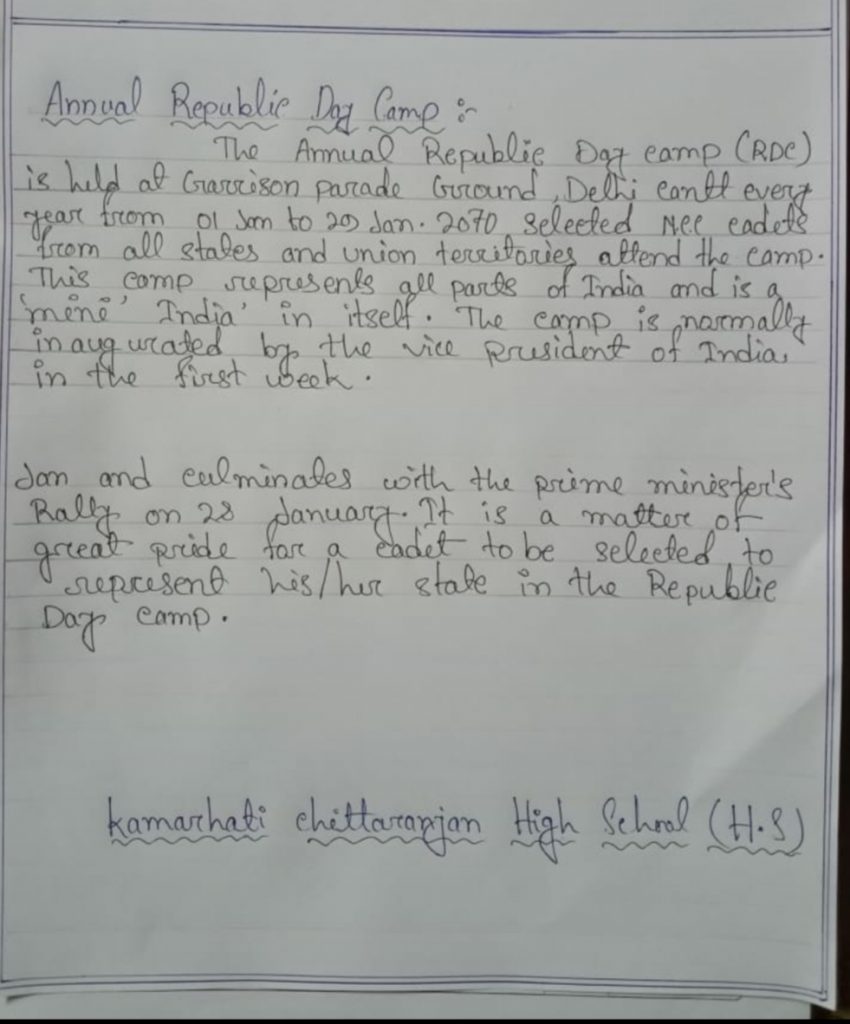 Annual Republic Day Camp :-
The Annual Republic Day camp (RDC)
is held at Garrison parade Ground, Delhi cantt every
year from 01 Jan to 29 Jan. 2070 selected NCC cadets
from all states and union territories attend the camp.
This camp represents all parts of India and is a
'mene' India' in itself. The camp is normally
inaugurated by the vice president of India,
in the first week.
Jan and culminates with the prime minister's
Rally on 28 January. It is a matter of
great pride for a cadet to be selected to
represent his/her state in the Republic
Day camp.
Kamarhati chittaranjan High School (H.S)